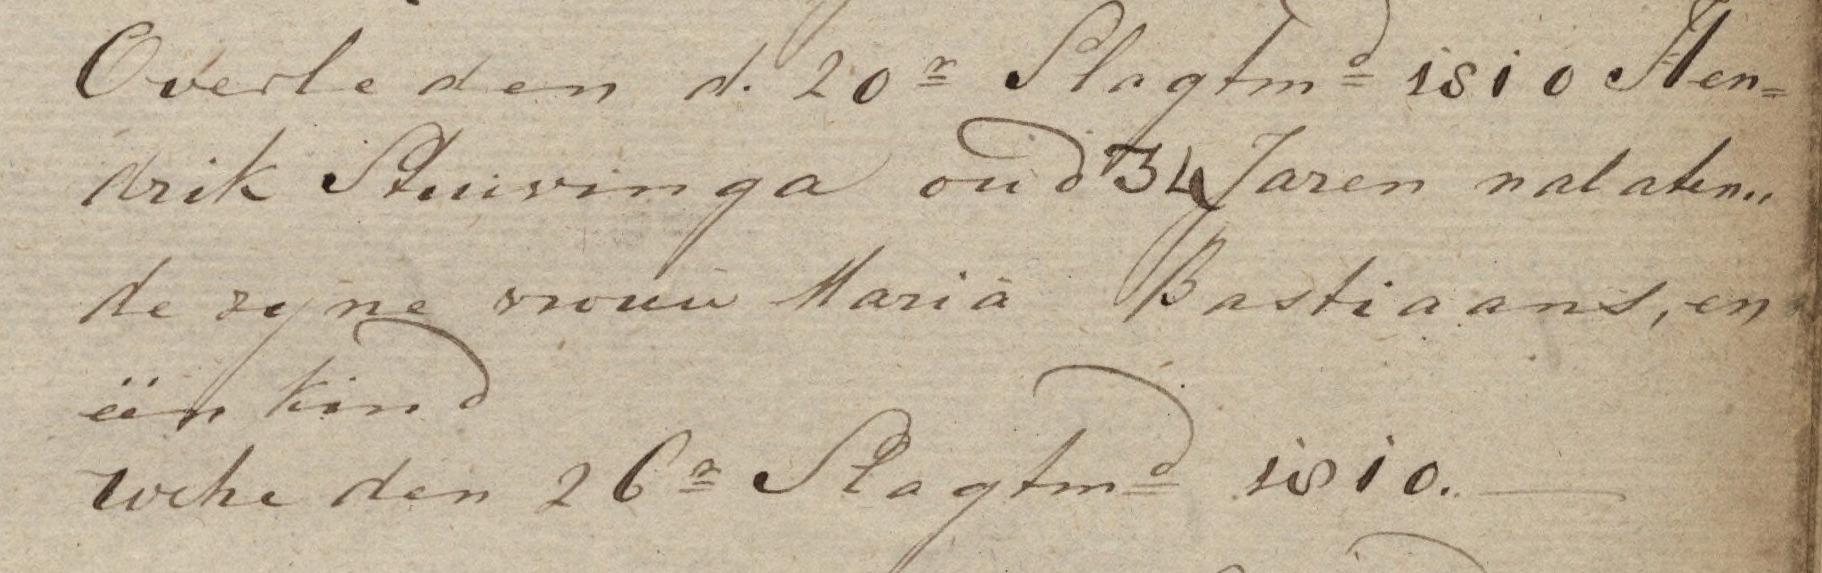 Overleden d. 20n Slagtmd 1810 Hen=
drik Stuivinga oud 34 Jaren nalaten„
de zyne vrouw Maria Bastiaans, en
één kind
den 26n Slagtmd 1810. —